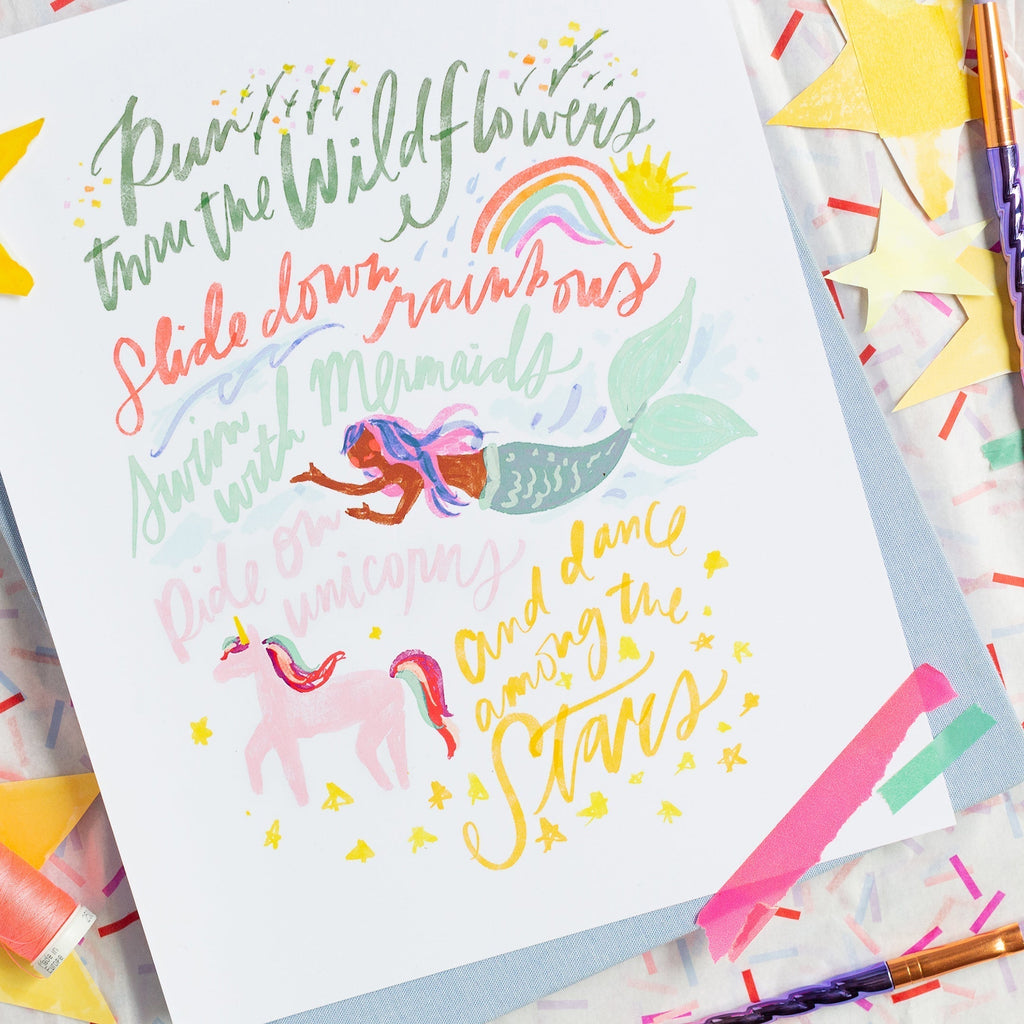 Run
thru the Wildflowers
Slide down
rainbows
Swim
with Mermaids
Ride on
unicorns
and dance
among the
Stars
Made in
Europe